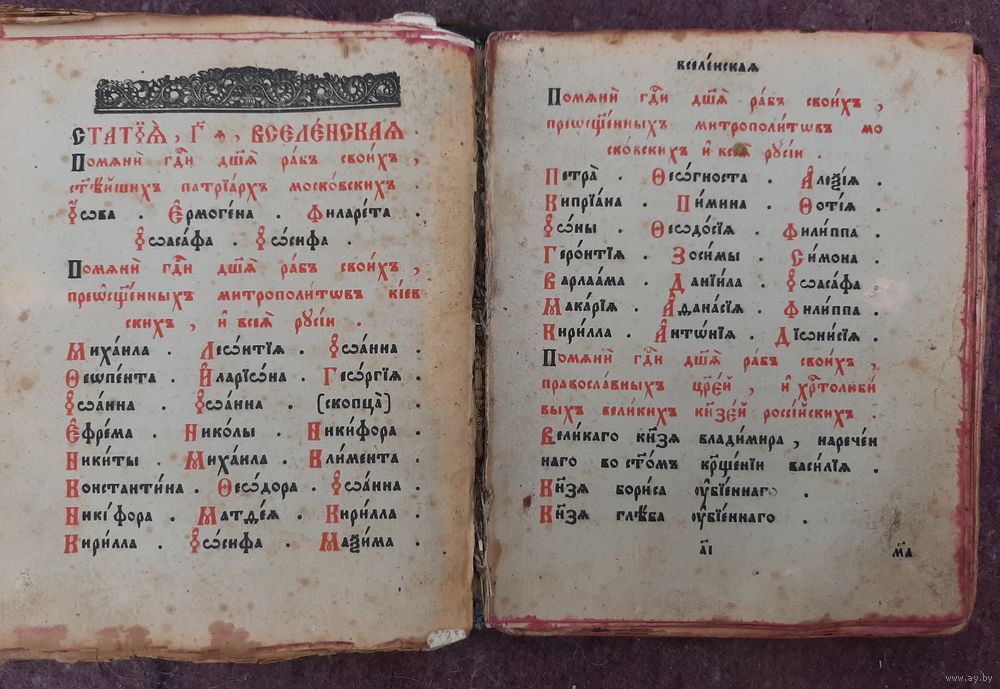 СТАТІѦ̀, Г҃ѧ, ВСЕЛЕ́НСКАѦ.
Помѧнѝ гдⷭ҇и дш҃ѧ ра́бъ свои́хъ,
ст҃ѣ́йшихъ патрїа́рхъ моско́вскихъ.
І҆́ѡва . Е҆рмоге́на . Филаре́та .
І҆ѡаса́фа . І҆ѡ́сифа .
Помѧнѝ гдⷭ҇и дш҃ѧ ра́бъ свои́хъ,
преѡ҆сщ҃е́нныхъ митрополи́тѡвъ кі́ев
скихъ, и҆ всеѧ̀ рѹсі́и .
Миха́ила . Леѡ́нтїѧ . І҆ѡа́нна .
Ѳеѡпе́нта . И҆ларїѡ́на . Геѡ́ргїѧ .
І҆ѡа́нна . І҆ѡа́нна . (скопца̀) .
Е҆фре́ма . Нико́лы . Ники́фора .
Ники́ты . Миха́ила . Кли́мента .
Константи́на . Ѳеѡ́дора . І҆ѡа́нна .
Никі́фора . Матѳе́ѧ . Кири́лла .
Кири́лла . І҆ѡ́сифа . Маѯи́ма .
вселе́нскаѧ
Помѧнѝ гдⷭ҇и дш҃ѧ ра́бъ свои́хъ,
преѡ҆сщ҃е́нныхъ митрополи́тѡвъ мо
ско́вскихъ и҆ всеѧ̀ рѹсі́и .
Петра̀ . Ѳеѡ́гноста . А҆леѯі́ѧ .
Кипрїа́на . Пи́мина . Фо́тїѧ .
І҆ѡ́ны . Ѳеѡдо́сїѧ . Фили́ппа .
Геро́нтїѧ . Зоси́мы . Си́мона .
Варлаа́ма . Данїи́ла . І҆ѡаса́фа
Мака́рїѧ . А҆ѳана́сїѧ . Фили́ппа .
Кири́лла . А҆нтѡ́нїѧ . Дїѡни́сїѧ .
Помѧнѝ гдⷭ҇и дш҃ѧ ра́бъ свои́хъ,
правосла́вныхъ цр҃е́й, и҆ хрⷭ҇толюби́
выхъ вели́кихъ кнѧ҃зе́й россі́йскихъ .
Вели́каго кн҃зѧ влади́мира, нарече́н
наго во ст҃о́мъ крⷳ҇щенїи васи́лїѧ .
Кн҃зѧ бори́са ѹ҆бїе́ннаго .
Кн҃зѧ глѣ́ба ѹ҆бїе́ннаго .
а҃і
мⷭ҇а
www.ay.by